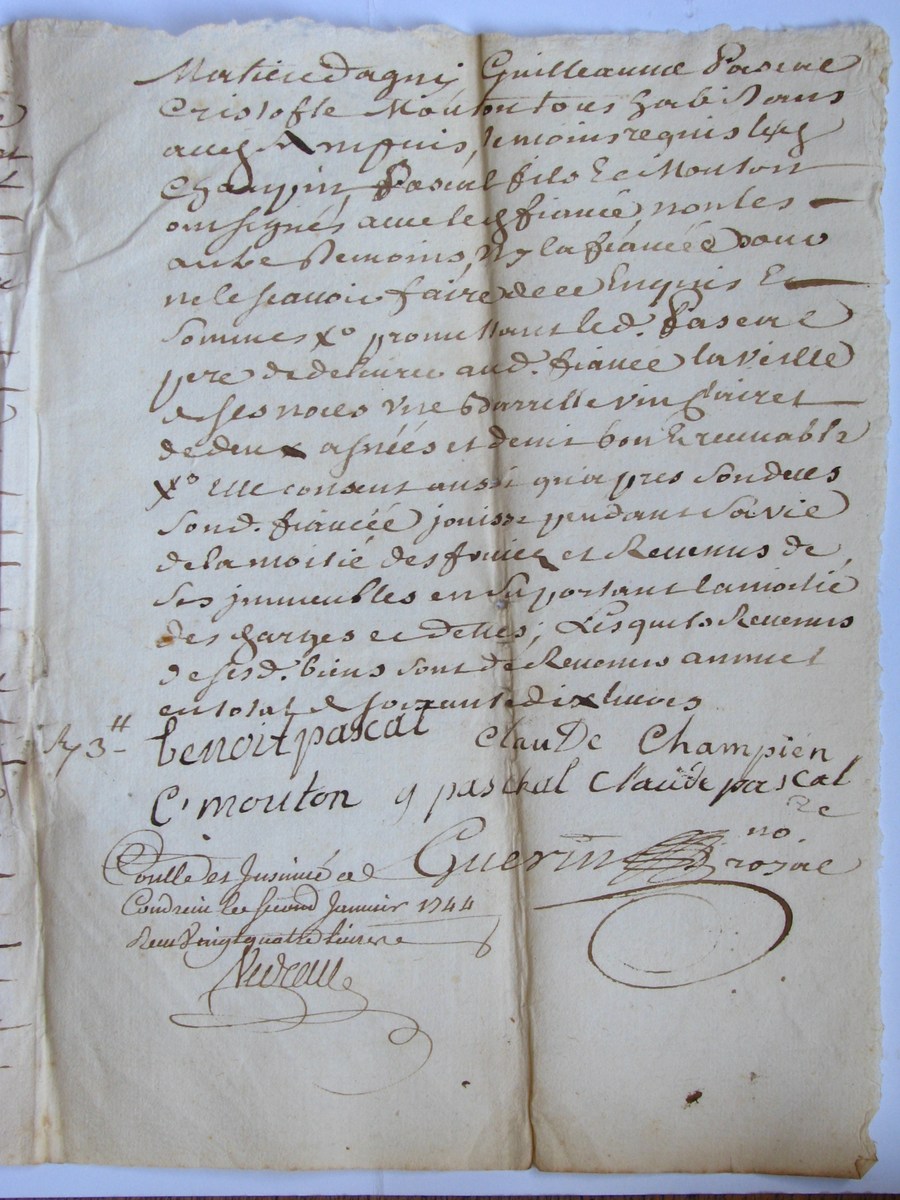 Matieu dagni Guilleaume Pascal
Cristofle Mouton tous habitans
aud Ampuis, temoins requis led
Champin, Pascal fils Et Mouton
ont signés avec led fiancé, non les
autres temoins, Ny la fiancée pour
ne le scavoir faire de ce Enquis Et
Sommes Xo promettant led. Pascal
pere de delivrer aud. fiancé la veille
de ses noces une barrille vin Clairet
de deux asnées et demie bon Et recevable
Xo Elle consent aussi qu'apres son deces
Sond. fiancée jouisse pendant sa vie
de la moitié des fruicts et Revenus de
Ses immeubles en suportant la moitié
des charges et dettes; Lesquels Revenus
de sesd. biens sont de Revenus annuel
en total de soixante dix livres
benoit pascal Claude Champien
C. mouton g paschal Claude pascal
Guerin no re
roial
3 tt
Conlle et Insinué a
Condrieu le second Janvier 1744
Receu vingt quatre livres